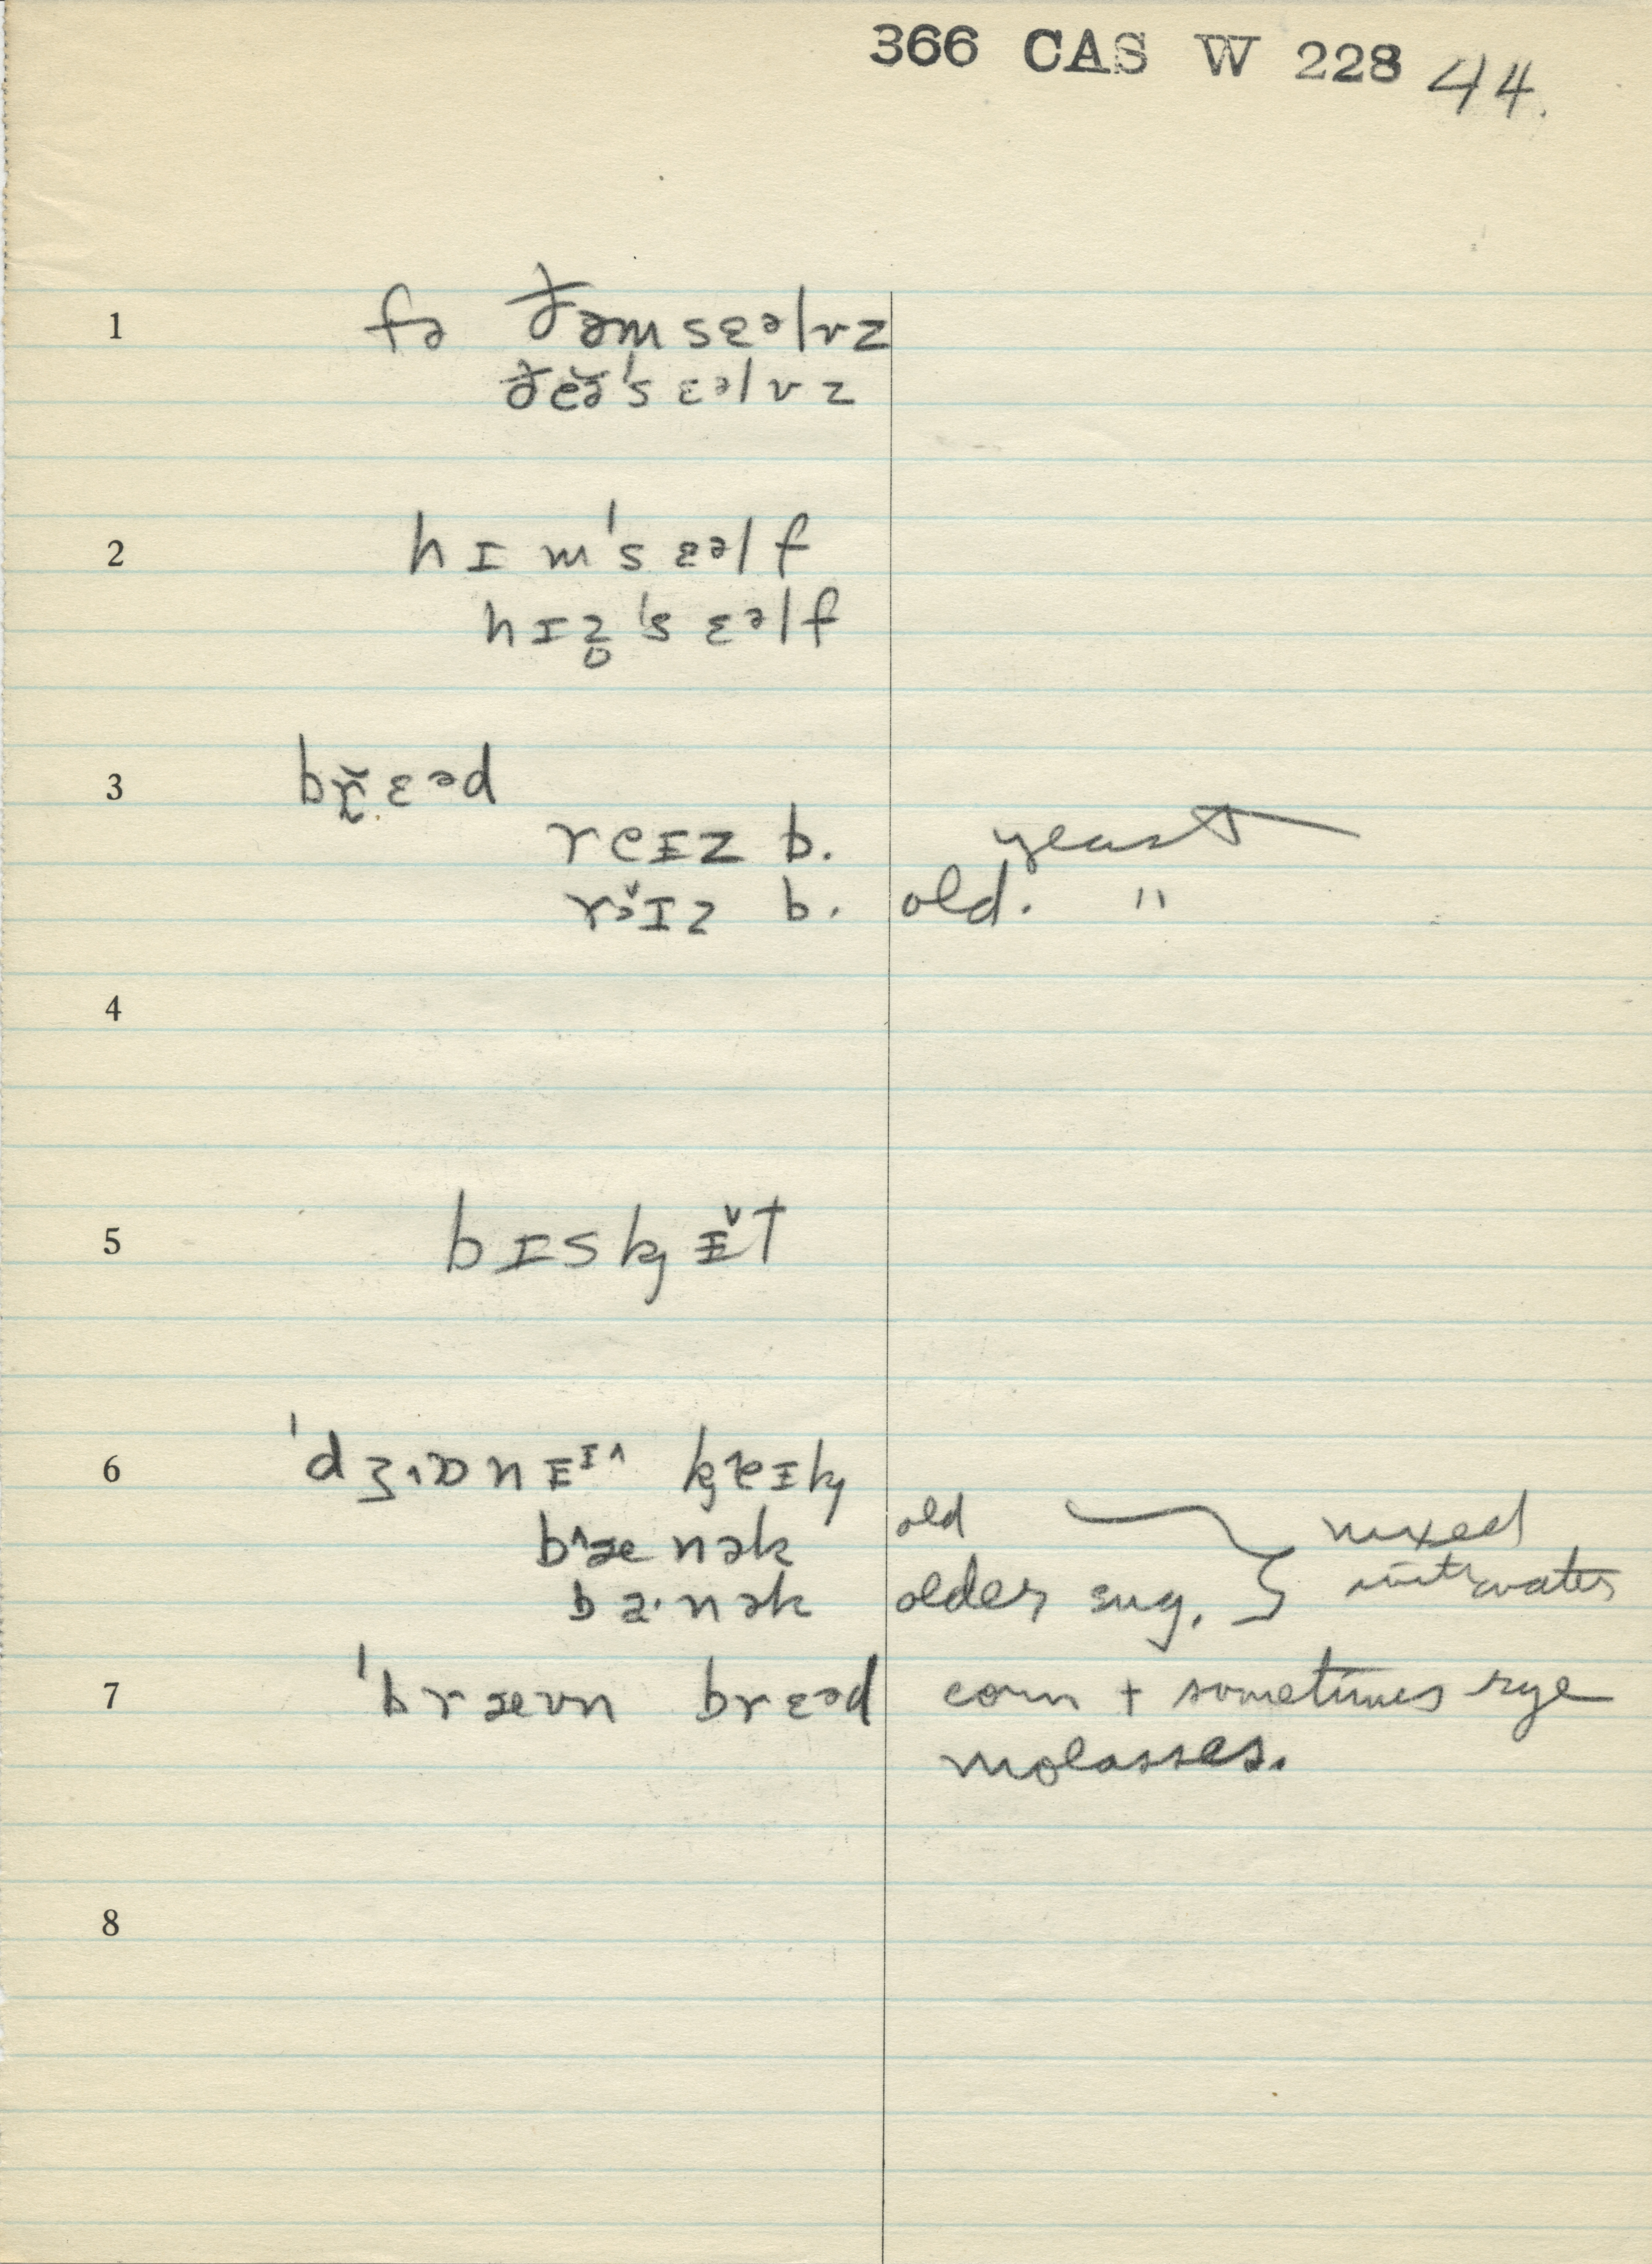 366 CAS W 228 44.
1 fə ðəmsɛᵊlvz
ðeə̆'sɛᵊlvz
2 hɪm'sɛᵊlf
hɪz̥'sɛᵊlf
3 br̥̆ɛᵊd
reɪz b. yeast
rɪz b. old. "
4
5 bɪskɨ̬t
6 'dʒɒnɨ
old mixed
bænək
banək older sug. with water
7 'bræʊn brɛᵊd corn + sometimes rye
molasses.
8